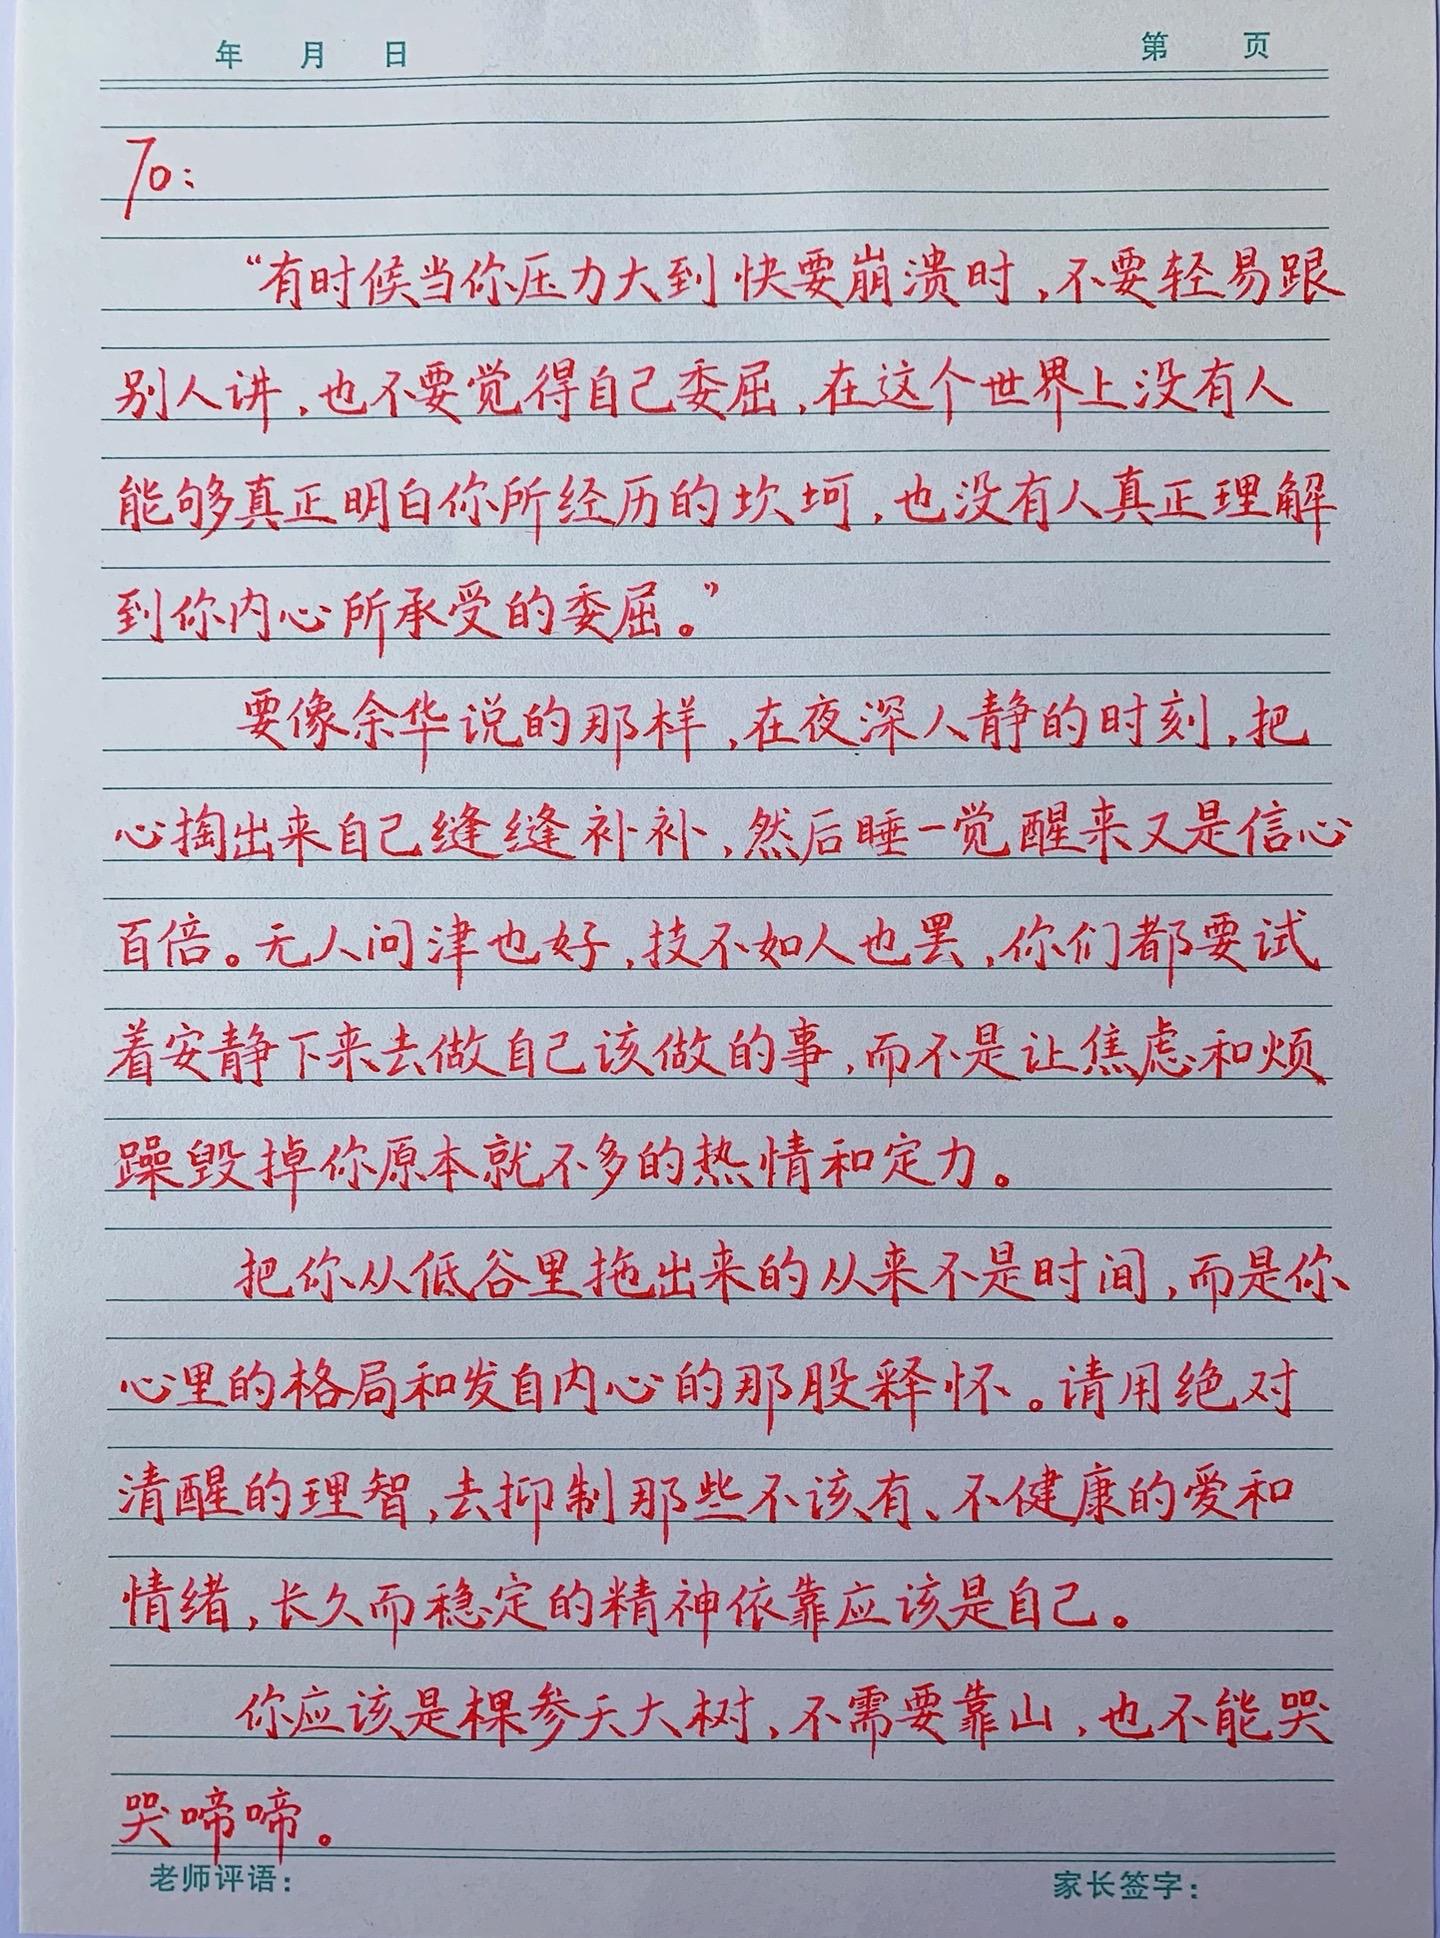 年 月 日 第 页
To:
“有时候当你压力大到快要崩溃时,不要轻易跟
别人讲,也不要觉得自己委屈,在这个世界上没有人
能够真正明白你所经历的坎坷,也没有人真正理解
到你内心所承受的委屈。”
要像余华说的那样,在夜深人静的时刻,把
心掏出来自己缝缝补补,然后睡一觉醒来又是信心
百倍。无人问津也好,技不如人也罢,你们都要试
着安静下来去做自己该做的事,而不是让焦虑和烦
躁毁掉你原本就不多的热情和定力。
把你从低谷里拖出来的从来不是时间,而是你
心里的格局和发自内心的那股释怀。请用绝对
清醒的理智,去抑制那些不该有、不健康的爱和
情绪,长久而稳定的精神依靠应该是自己。
你应该是棵参天大树,不需要靠山,也不能哭
哭啼啼。
老师评语: 家长签字: